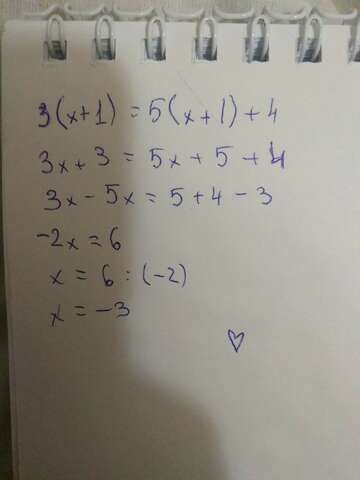 3(x+1) = 5(x+1)+4
3x+3 = 5x+5+4
3x-5x = 5+4-3
-2x = 6
x = 6 : (-2)
x = -3